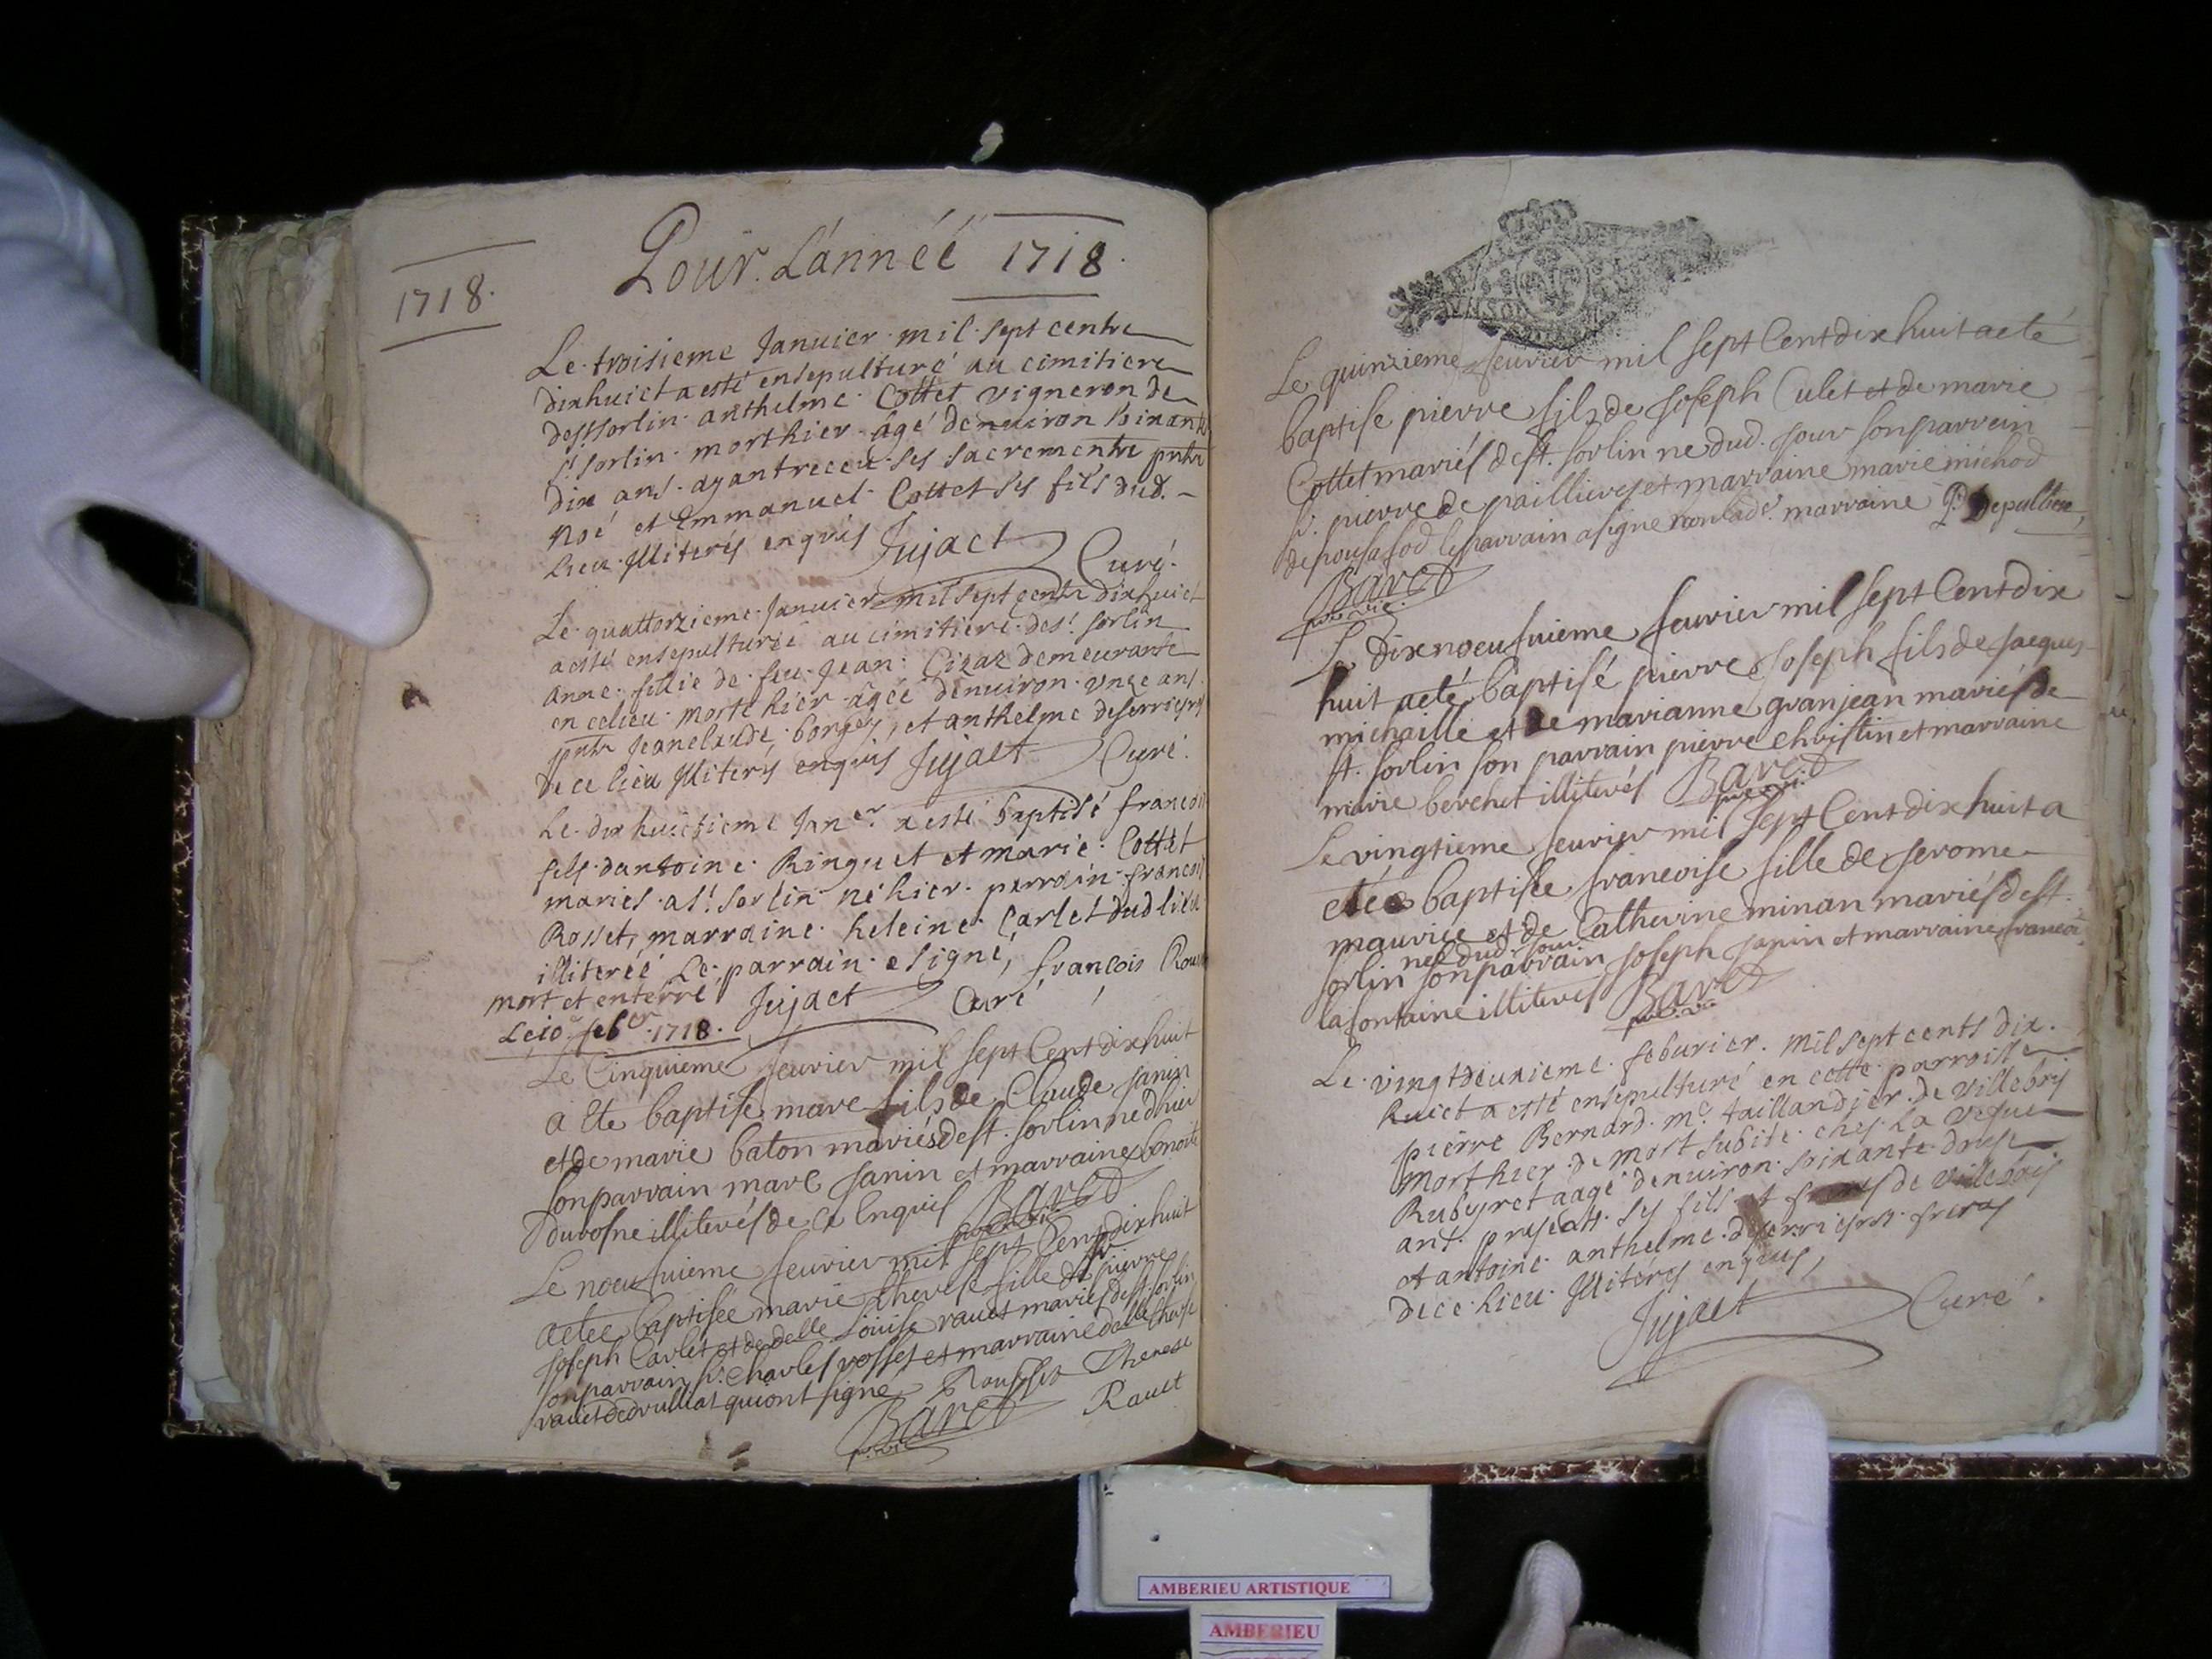 1718.
Pour L'année 1718.
Le troisieme Januier mil sept centz
dixhuict a esté ensepulturé au cimitiere
de st sorlin anthelme Cottet vigneron de
st sorlin mort hier âgé denuiron soixante
dix ans ayant receu ses sacrementz pntz
Noé et Emmanuel Cottet ses fils dud.
Lieu illiterés enquis Jujact Curé.
Le quattorzieme Januier mil sept centz dixhuict
a esté ensepulturée au cimitiere de st sorlin
anne fillie de feu Jean Cizaz demeurante
en ce lieu morte hier âgée denuiron unze ans
pntz Jeanclaude borgey, et anthelme deserrieres
de ce lieu illiterés enquis Jujact Curé.
Le dix huictieme Janer a esté baptisé francois
fils dantoine Ringuet et marie Cottet
mariés a st sorlin né hier parrain francois
Rosset, marraine heleine Carlet dud lieu
illiterée Le parrain a signé, francois Rous
mort et enterré Jujact Curé
Le 10e feber 1718.
Le Cinquieme feurier mil sept Cent dixhuit
a ete baptisé marc fils de Claude Janin
et de marie baton mariés de st. sorlin ne d'hier
son parrain marc Janin et marraine benoite
duvosne illiterés de ce enquis Baret
pro vic.
Le noeufuieme feurier mil sept Cent dixhuit
a etee baptisée marie therese fille de sr pierre
joseph Carlet et de delle Louise rauet mariés de st. sorlin
son parrain sr. Charles rosset et marraine delle therese
rauet de druillat qui ont signé Rousset Therese
Baret Rauet
Le quinzieme feurier mil sept Cent dix huit a eté
baptise pierre fils de joseph Culet et de marie
Cottet mariés de st. sorlin ne dud. jour son parrein
sr. pierre de paillieres et marraine marie michod
de le parrain a signe non lade. marraine P. Depalliere
Baret
pro vic.
Le dixnoeufuieme feurier mil sept Cent dix
huit a eté baptisé pierre joseph fils de jacques
michaille et de marianne granjean mariés de
st. sorlin son parrain pierre christin et marraine
marie berchet illiterés Baret
pro vic.
Le vingtieme feurier mil sept Cent dix huit a
etée baptisée francoise fille de jerome
mauvice et de Catherine minan mariés de st.
sorlin née dud. jour son parrain joseph janin et marraine francoi
lafontaine illiterés Baret
pro vic.
Le vingtdeuxieme feburier mil sept cents dix
huict a esté ensepulturé en cette parroisse
pierre Bernard me taillandier de villebois
mort hier de mort subite chez La vefue
Rubeyret aagé denuiron soixante douse
ans presents ses fils et freres de villebois
et antoine anthelme deserrieres freres
de ce lieu illiterés enquis,
Jujact Curé.
AMBERIEU ARTISTIQUE
AMBERIEU